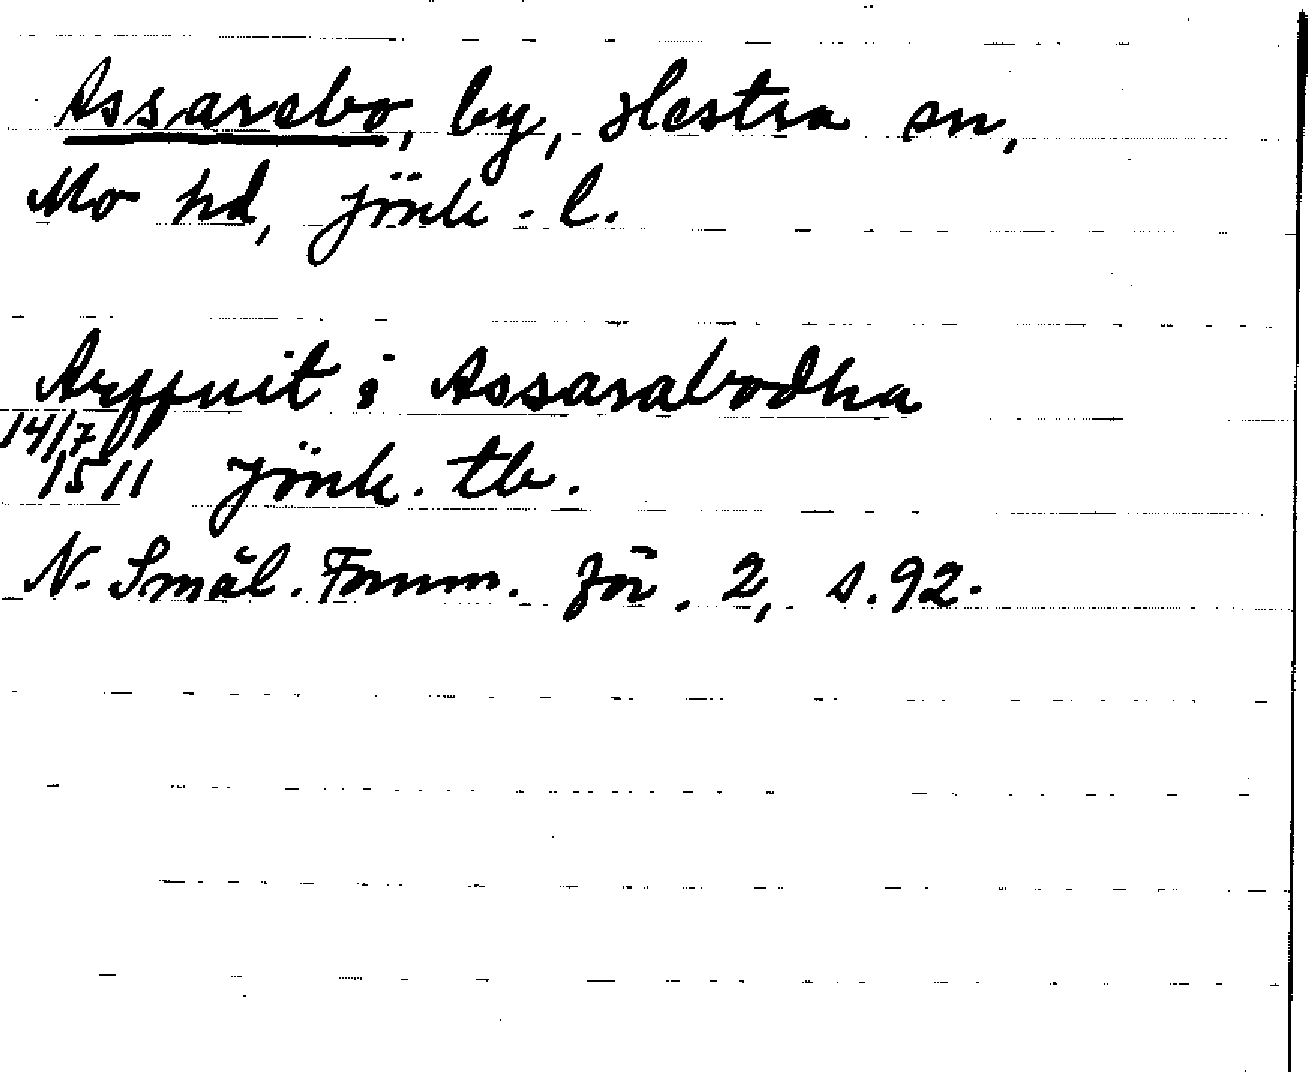 Assarebo, by, Hestra sn,
Mo hd, Jönk. l.
Arffuit i Assarabodha
14/7
1511 Jönk. tb.
N. Smål. Fornm. för. 2, s. 92.